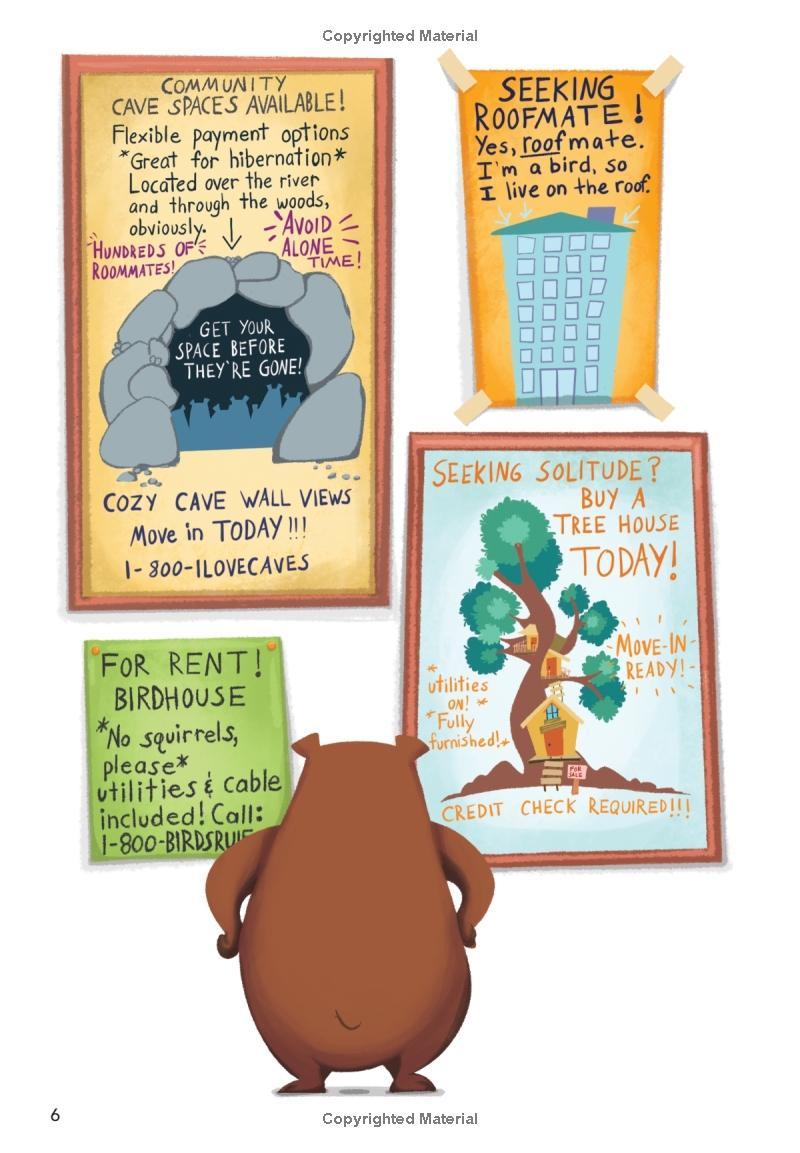 Copyrighted Material
COMMUNITY
CAVE SPACES AVAILABLE!
Flexible payment options
*Great for hibernation*
Located over the river
and through the woods,
obviously.
HUNDREDS OF
ROOMMATES!
AVOID
ALONE
TIME!
GET YOUR
SPACE BEFORE
THEY'RE GONE!
COZY CAVE WALL VIEWS
Move in TODAY!!!
1-800-ILOVECAVES
SEEKING
ROOFMATE!
Yes, roofmate.
I'm a bird, so
I live on the roof.
SEEKING SOLITUDE?
BUY A
TREE HOUSE
TODAY!
MOVE-IN
READY!
*utilities
ON!*
*Fully
furnished!*
FOR
SALE
CREDIT CHECK REQUIRED!!!
FOR RENT!
BIRDHOUSE
*No squirrels,
please*
utilities & cable
included! Call:
1-800-BIRDSRULE
6
Copyrighted Material